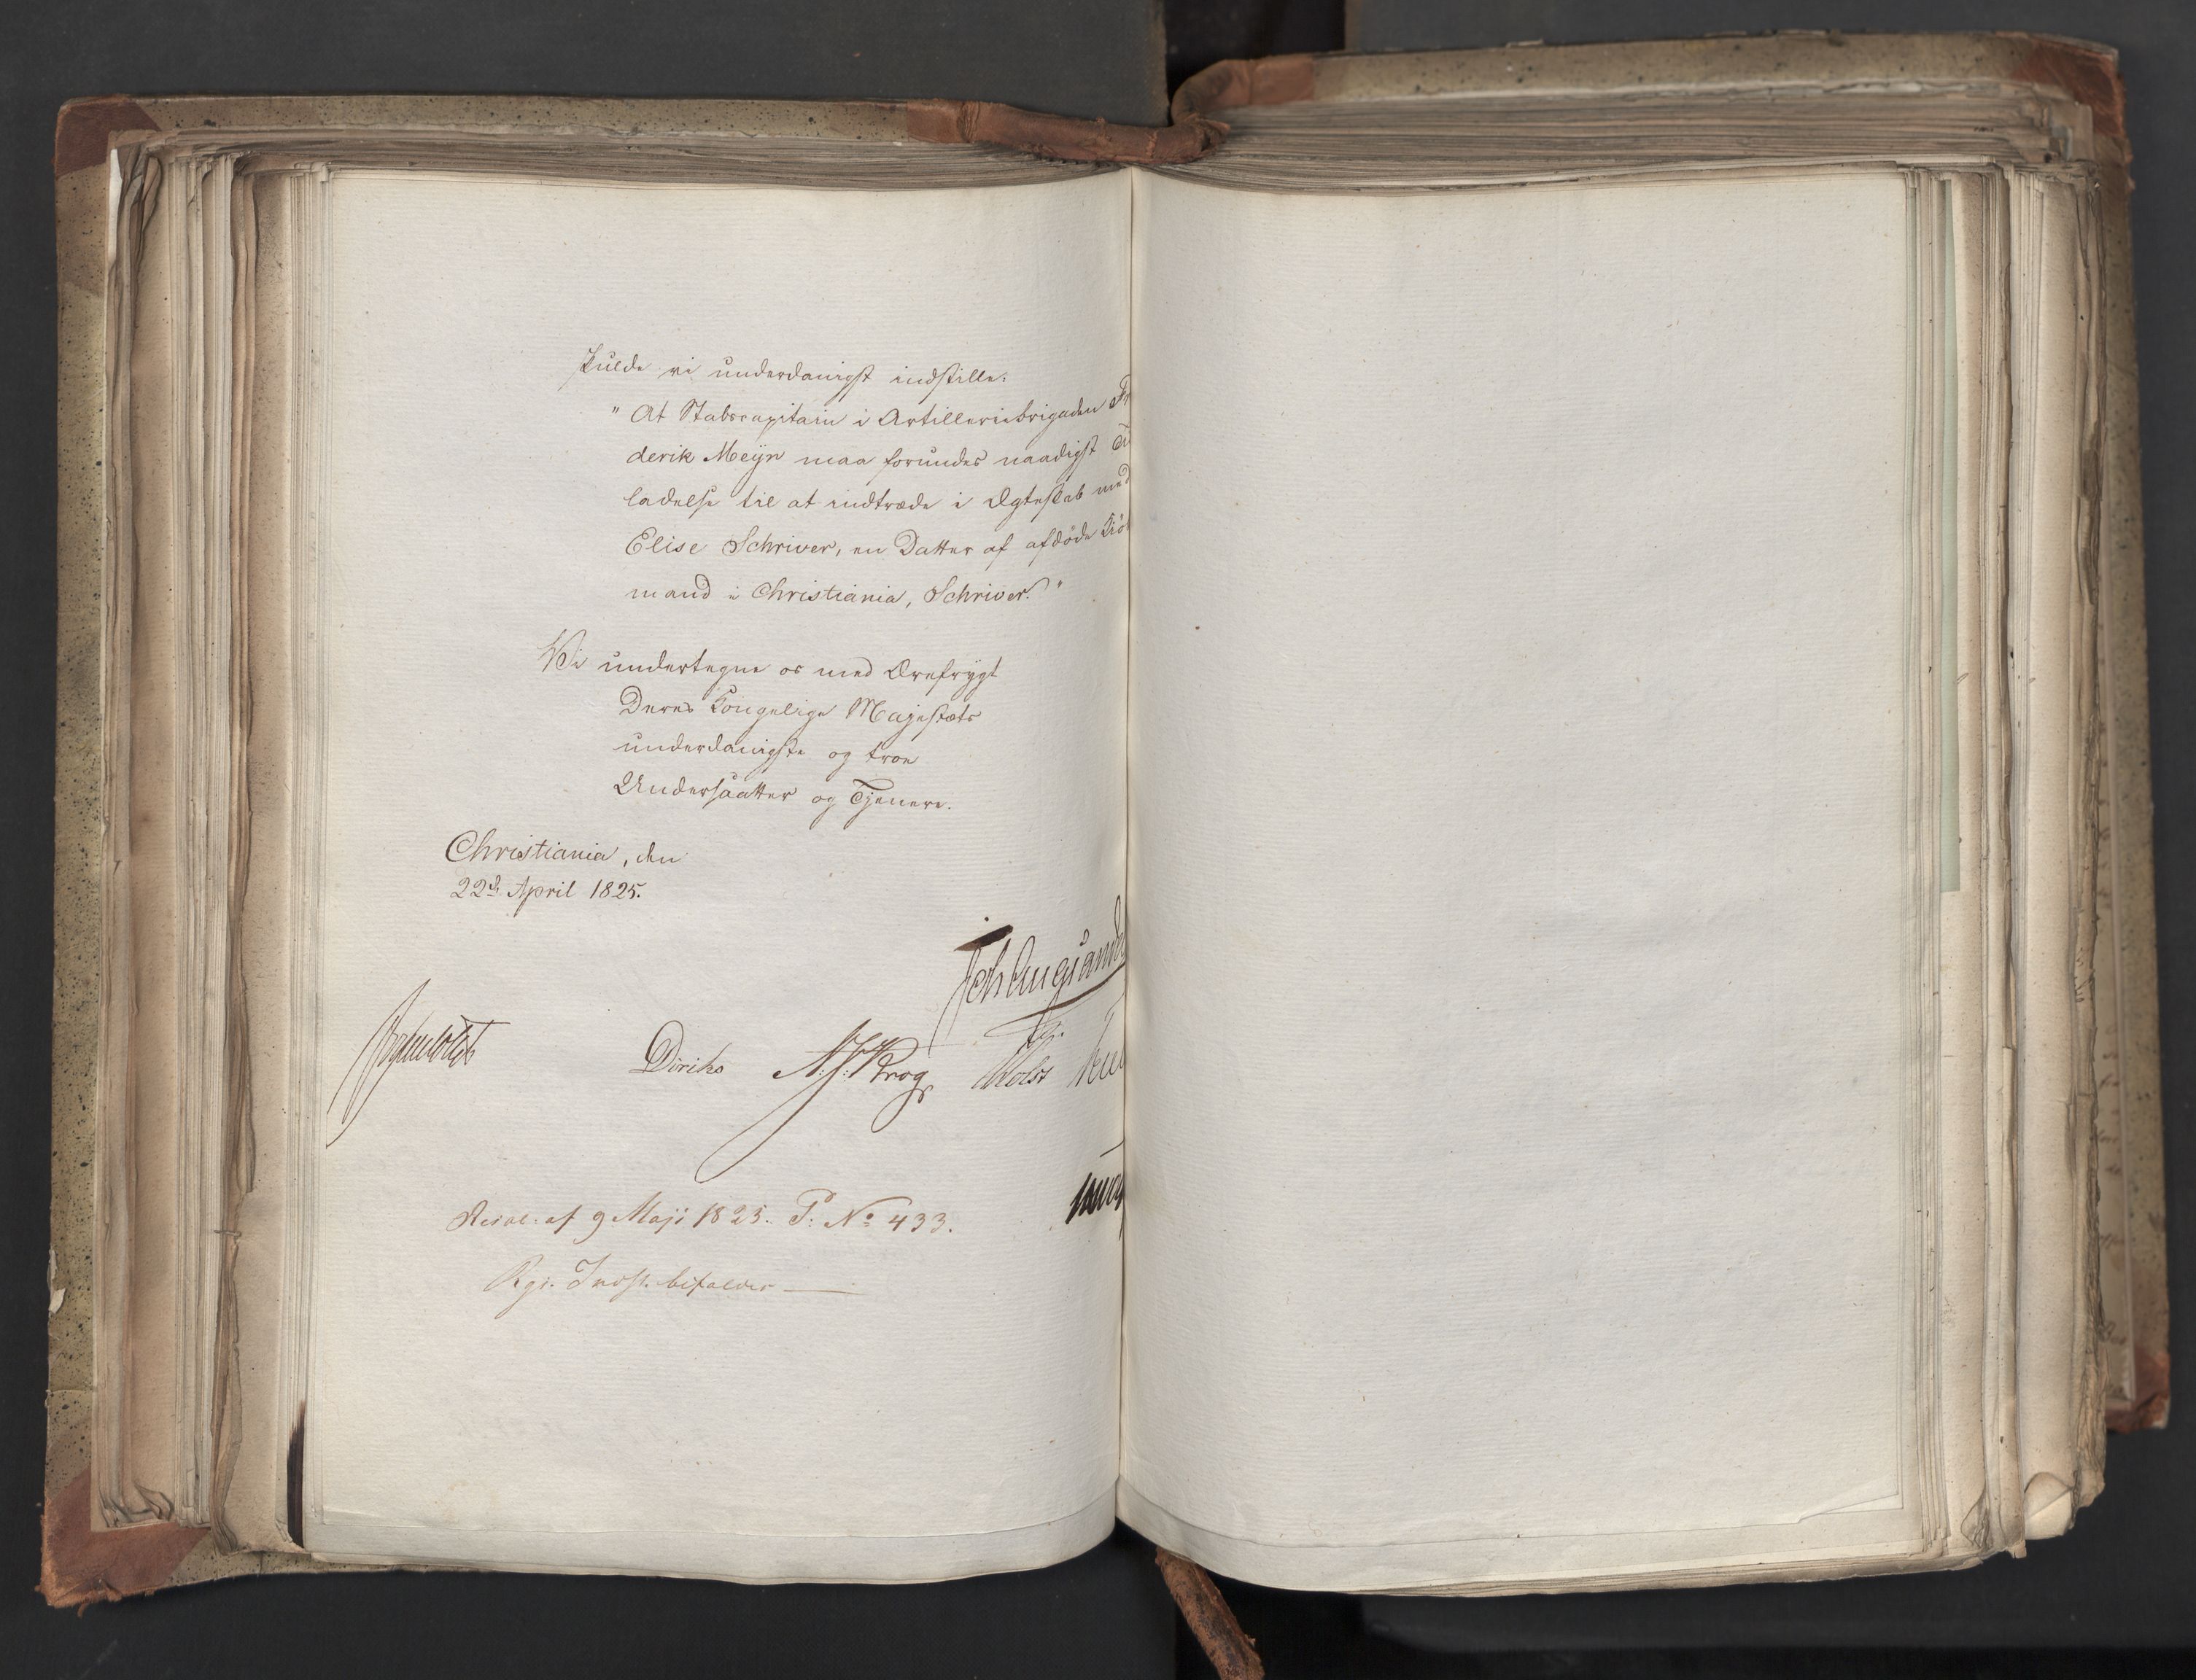 skulde vi underdanigst indstille:
"At Stabscapitain i Artilleriebrigaden Fr
derik Meijn maa forundes naadigst Til
ladelse til at indtræde i Ægteskab med
Elise Schriver, en Datter af afdöde Kiöb
mand i Christiania, Schriver."
Vi undertegne os med Ærefrygt
Deres Kongelige Majestæts
underdanigste og troe
Undersaatter og Tjenere.
Christiania, den
22de April 1825.
Diriks N. J. Krog Holst
Resol: af 9 Maji 1825. P: No 433.
Rgs. Indst. bifaldes